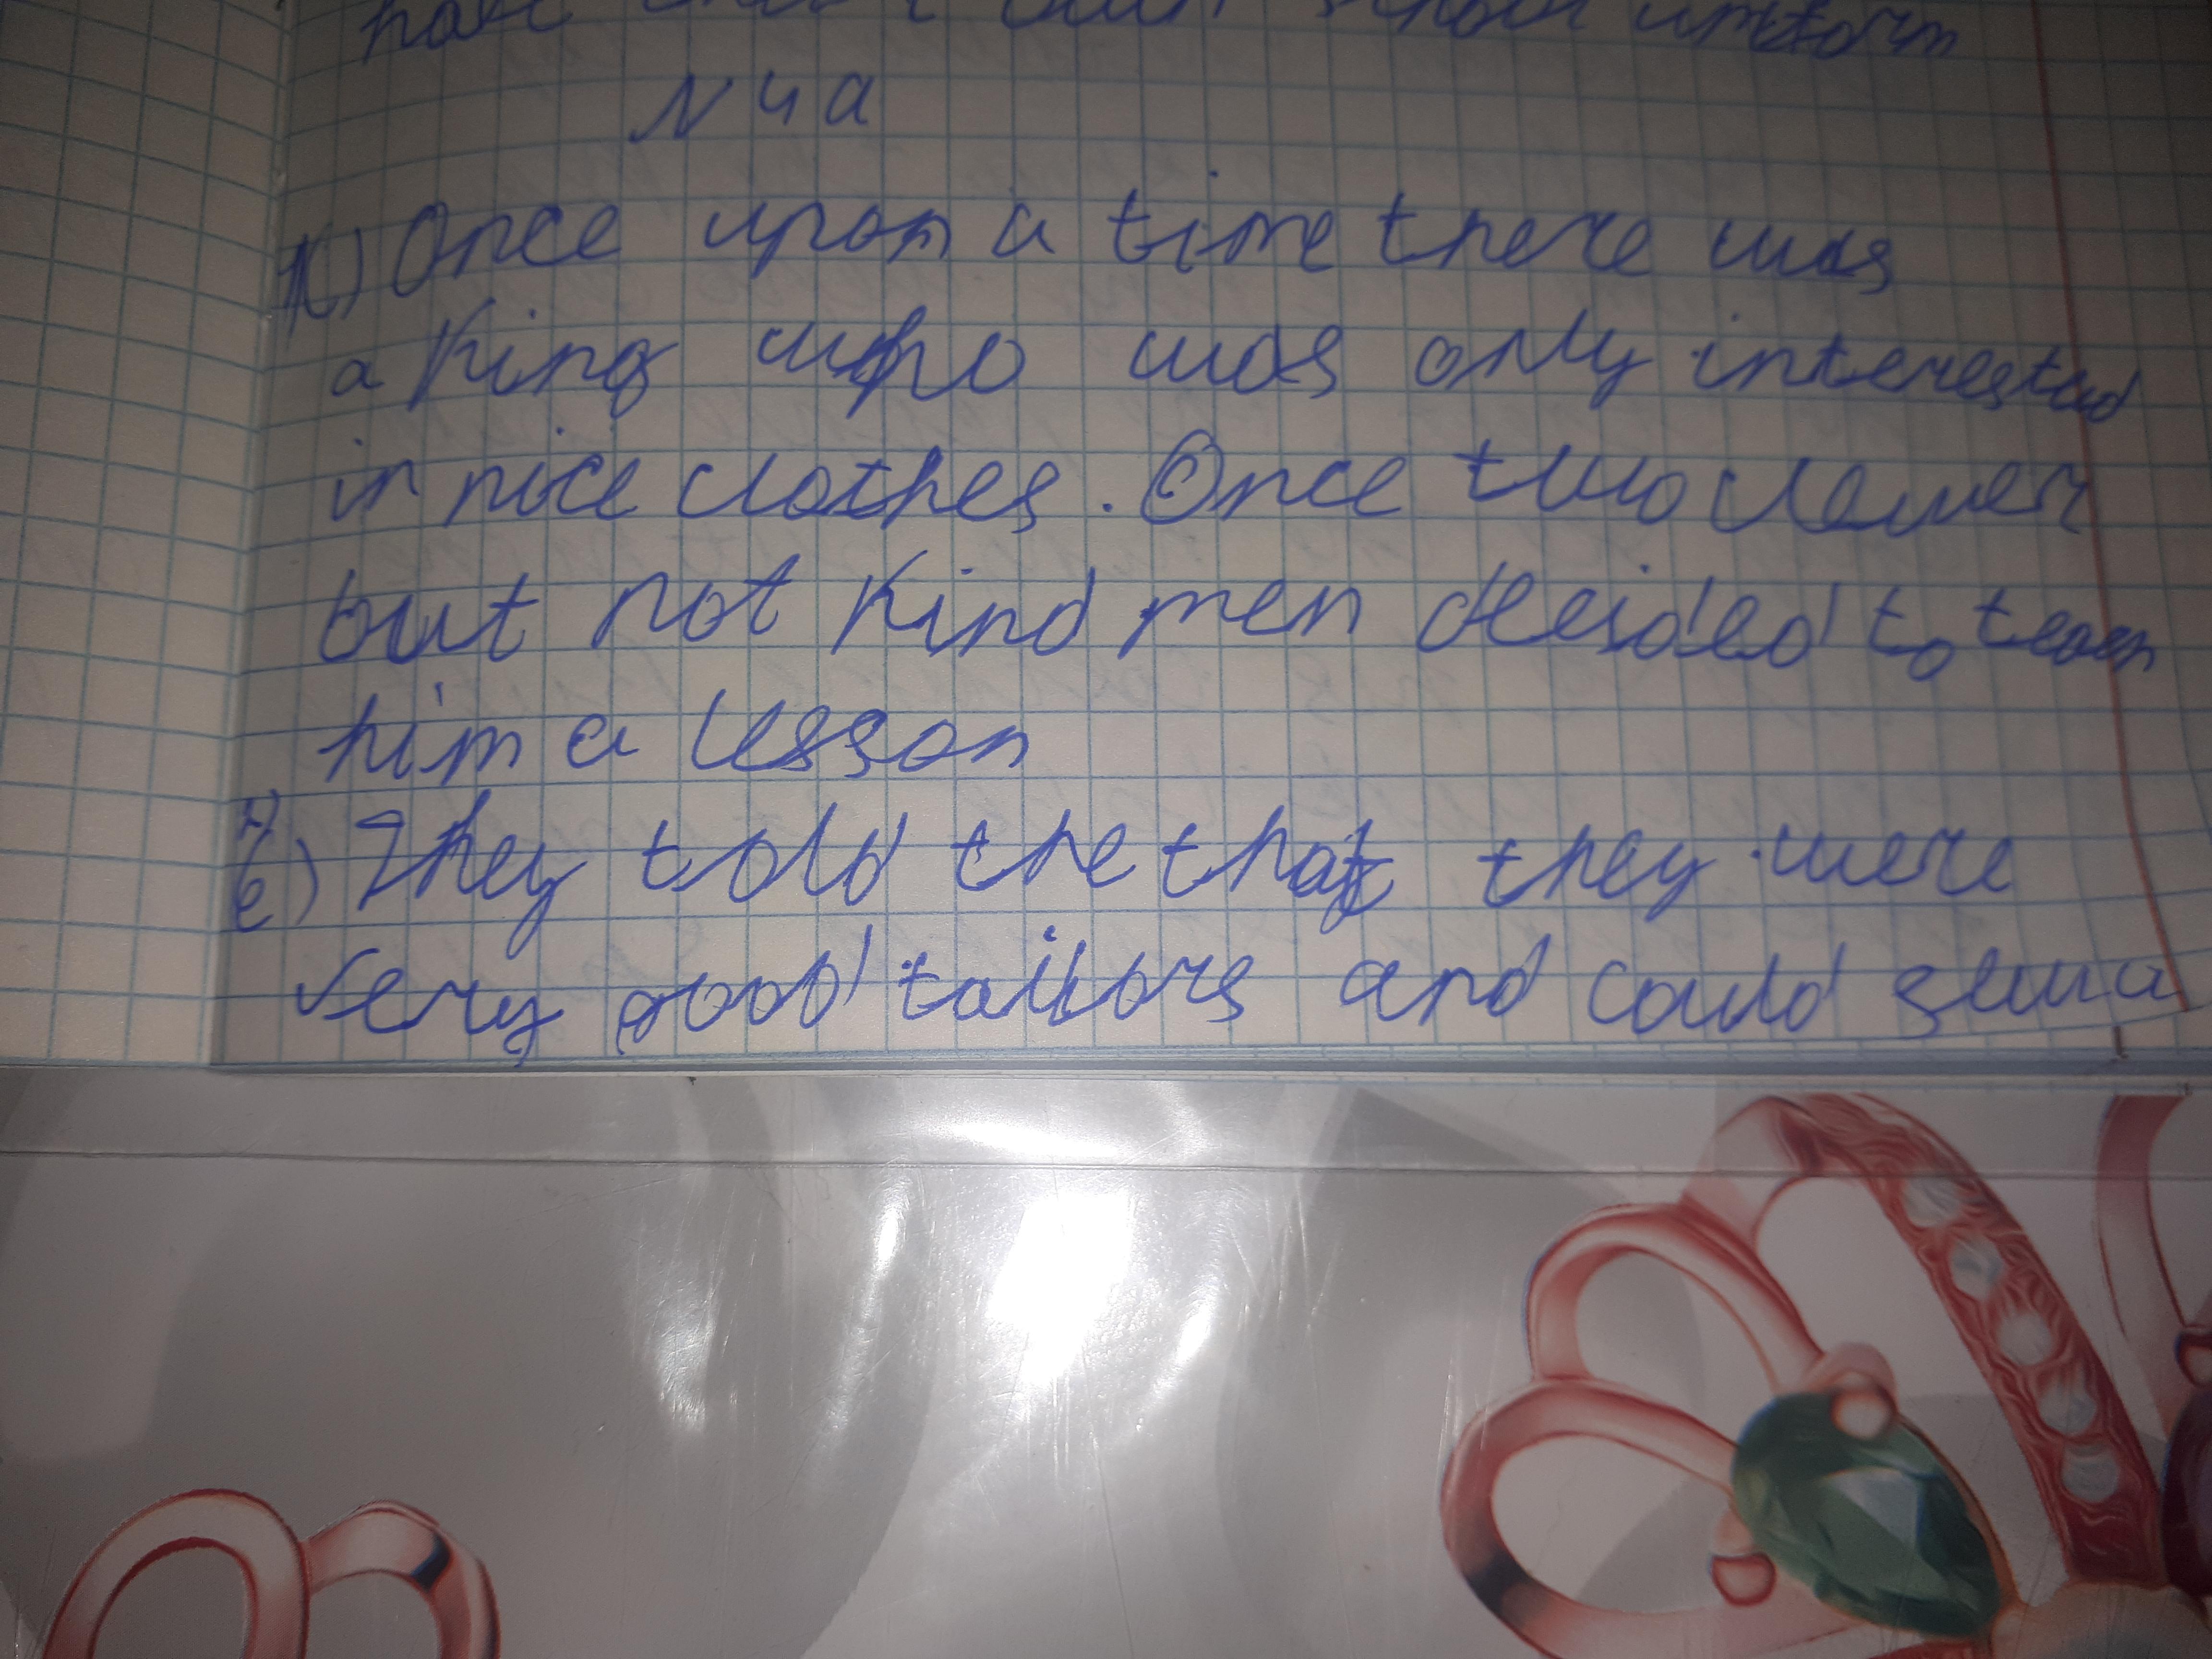 school uniform
N 4 a
1) Once upon a time there was
a King who was only interested
in nice clothes. Once two clewer
but not kind men decided to teach
him a lesson
6) They told the that they were
very good tailors and could sew a